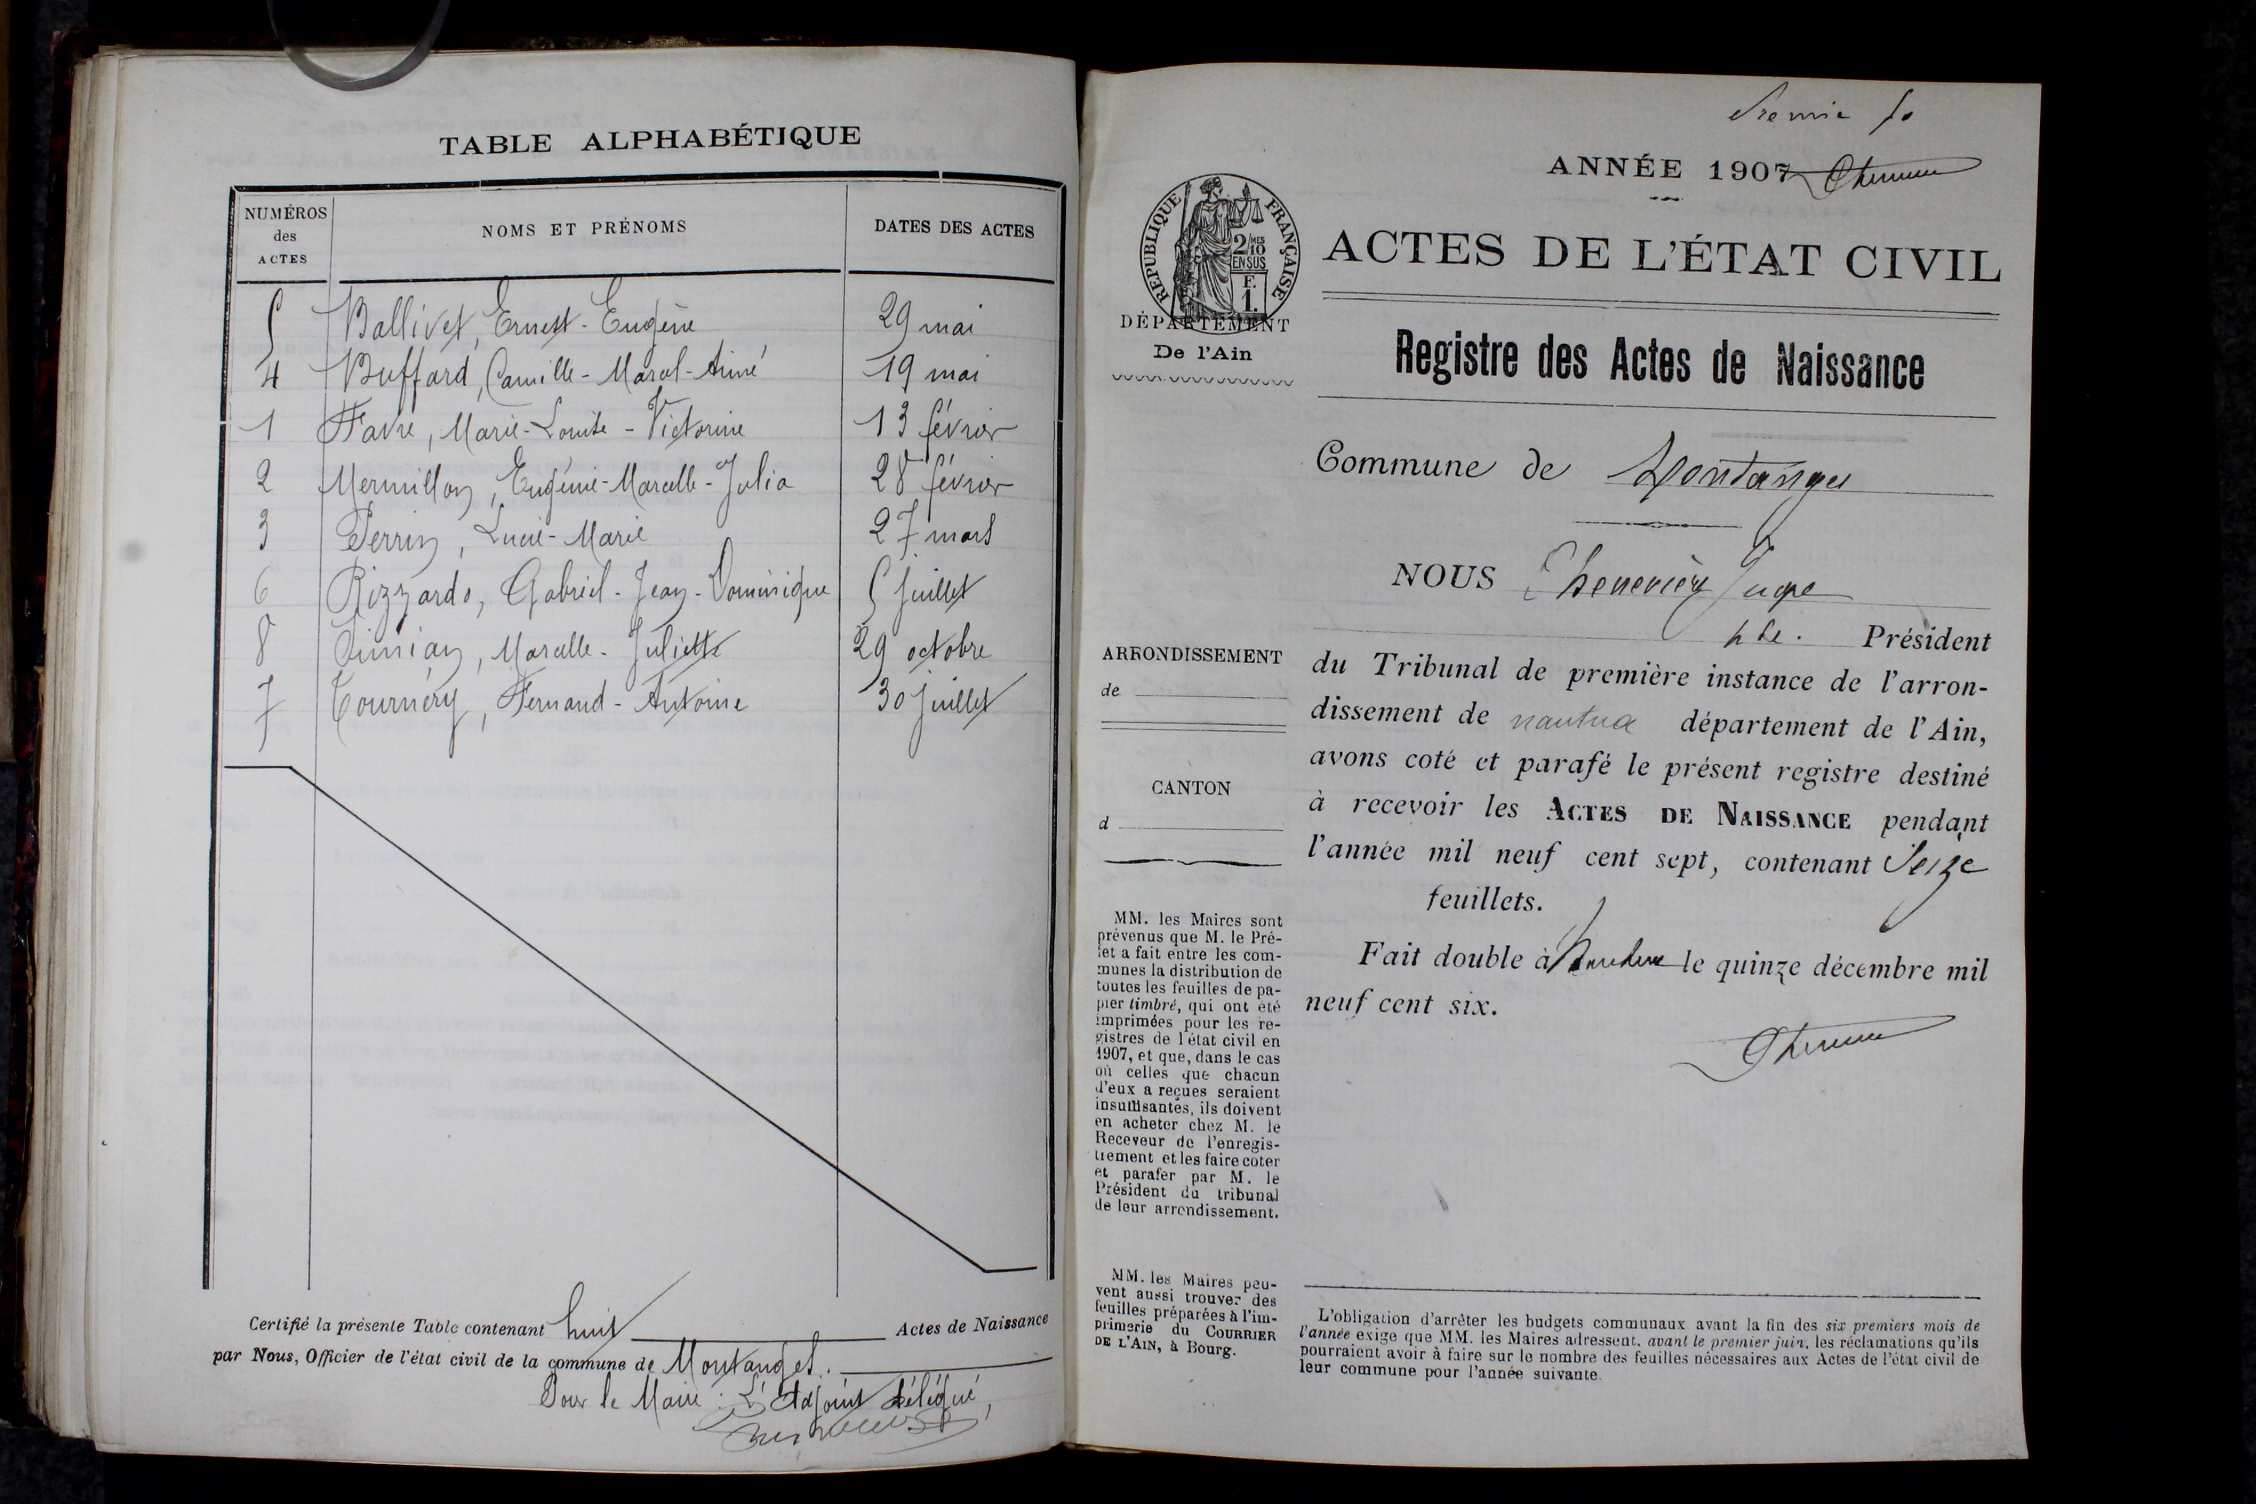 TABLE ALPHABÉTIQUE
NUMÉROS
des
ACTES
NOMS ET PRÉNOMS
DATES DES ACTES
5 Ballivet, Ernest-Eugène 29 mai
4 Buffard, Camille-Marcel-Aimé 19 mai
1 Favre, Marie-Louise-Victorine 13 février
2 Mermillon, Eugénie-Marcelle-Julia 28 février
3 Perrin, Lucie-Marie 27 mars
6 Rizzardo, Gabriel-Jean-Dominique 5 juillet
8 Marcelle-Juliette 29 octobre
7 Tournéry, Fernand-Antoine 30 juillet
Certifié la présente Table contenant huit Actes de Naissance
par Nous, Officier de l'état civil de la commune de Montanges.
Pour le Maire : L'Adjoint délégué,
ANNÉE 1907
RÉPUBLIQUE FRANÇAISE
2/10 MES
EN SUS
F.
1.
DÉPARTEMENT
De l'Ain
ARRONDISSEMENT
de
CANTON
d
MM. les Maires sont
prévenus que M. le Pré-
fet a fait entre les com-
munes la distribution de
toutes les feuilles de pa-
pier timbré, qui ont été
imprimées pour les re-
gistres de l'état civil en
1907, et que, dans le cas
où celles que chacun
d'eux a reçues seraient
insuffisantes, ils doivent
en acheter chez M. le
Receveur de l'enregis-
trement et les faire coter
et parafer par M. le
Président du tribunal
de leur arrondissement.
MM. les Maires peu-
vent aussi trouver des
feuilles préparées à l'im-
primerie du COURRIER
DE L'AIN, à Bourg.
ACTES DE L'ÉTAT CIVIL
Registre des Actes de Naissance
Commune de Montanges
NOUS Thenevière Juge
Président
du Tribunal de première instance de l'arron-
dissement de nantua département de l'Ain,
avons coté et parafé le présent registre destiné
à recevoir les ACTES DE NAISSANCE pendant
l'année mil neuf cent sept, contenant Seize
feuillets.
Fait double à Nantua le quinze décembre mil
neuf cent six.
L'obligation d'arrêter les budgets communaux avant la fin des six premiers mois de
l'année exige que MM. les Maires adressent, avant le premier juin, les réclamations qu'ils
pourraient avoir à faire sur le nombre des feuilles nécessaires aux Actes de l'état civil de
leur commune pour l'année suivante.